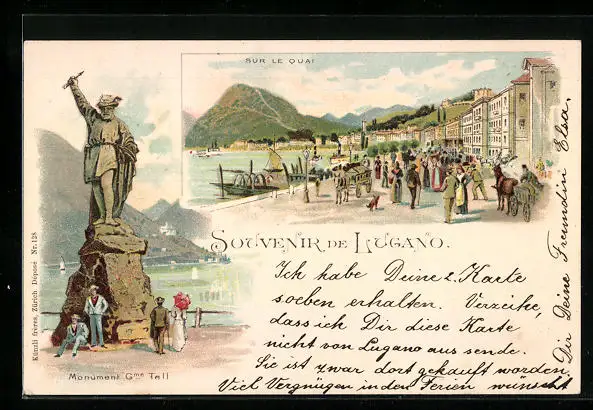 SUR LE QUAI
SOUVENIR DE LUGANO.
Monument Gme Tell
Künzli frères, Zürich Déposé Nr. 128
Ich habe Deine 2. Karte
soeben erhalten. Verzeihe,
dass ich Dir diese Karte
nicht von Lugano aus sende.
Sie ist zwar dort gekauft worden.
Viel Vergnügen in den Ferien wünscht
Dir Deine Freundin Elsa.